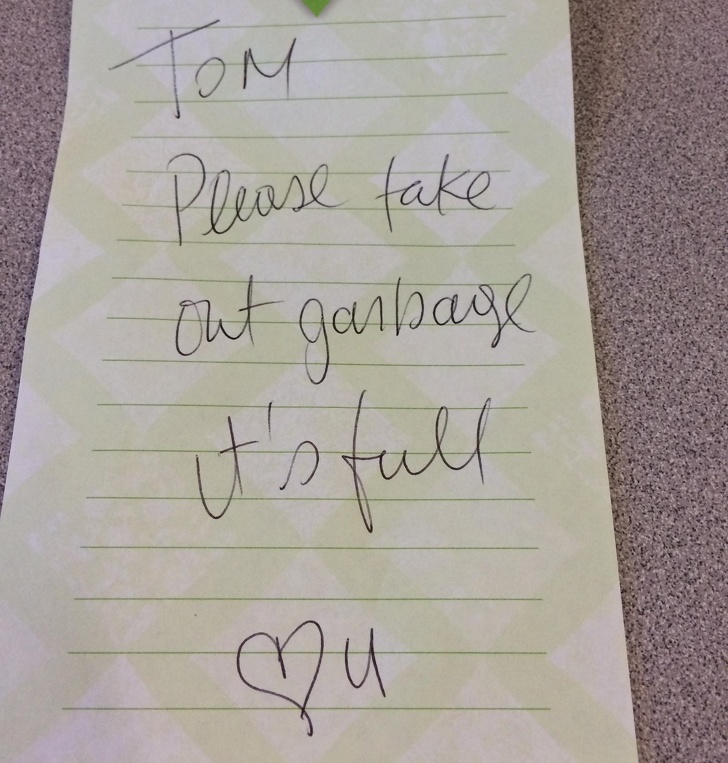 TOM
Please take
out garbage
it's full
♡ u